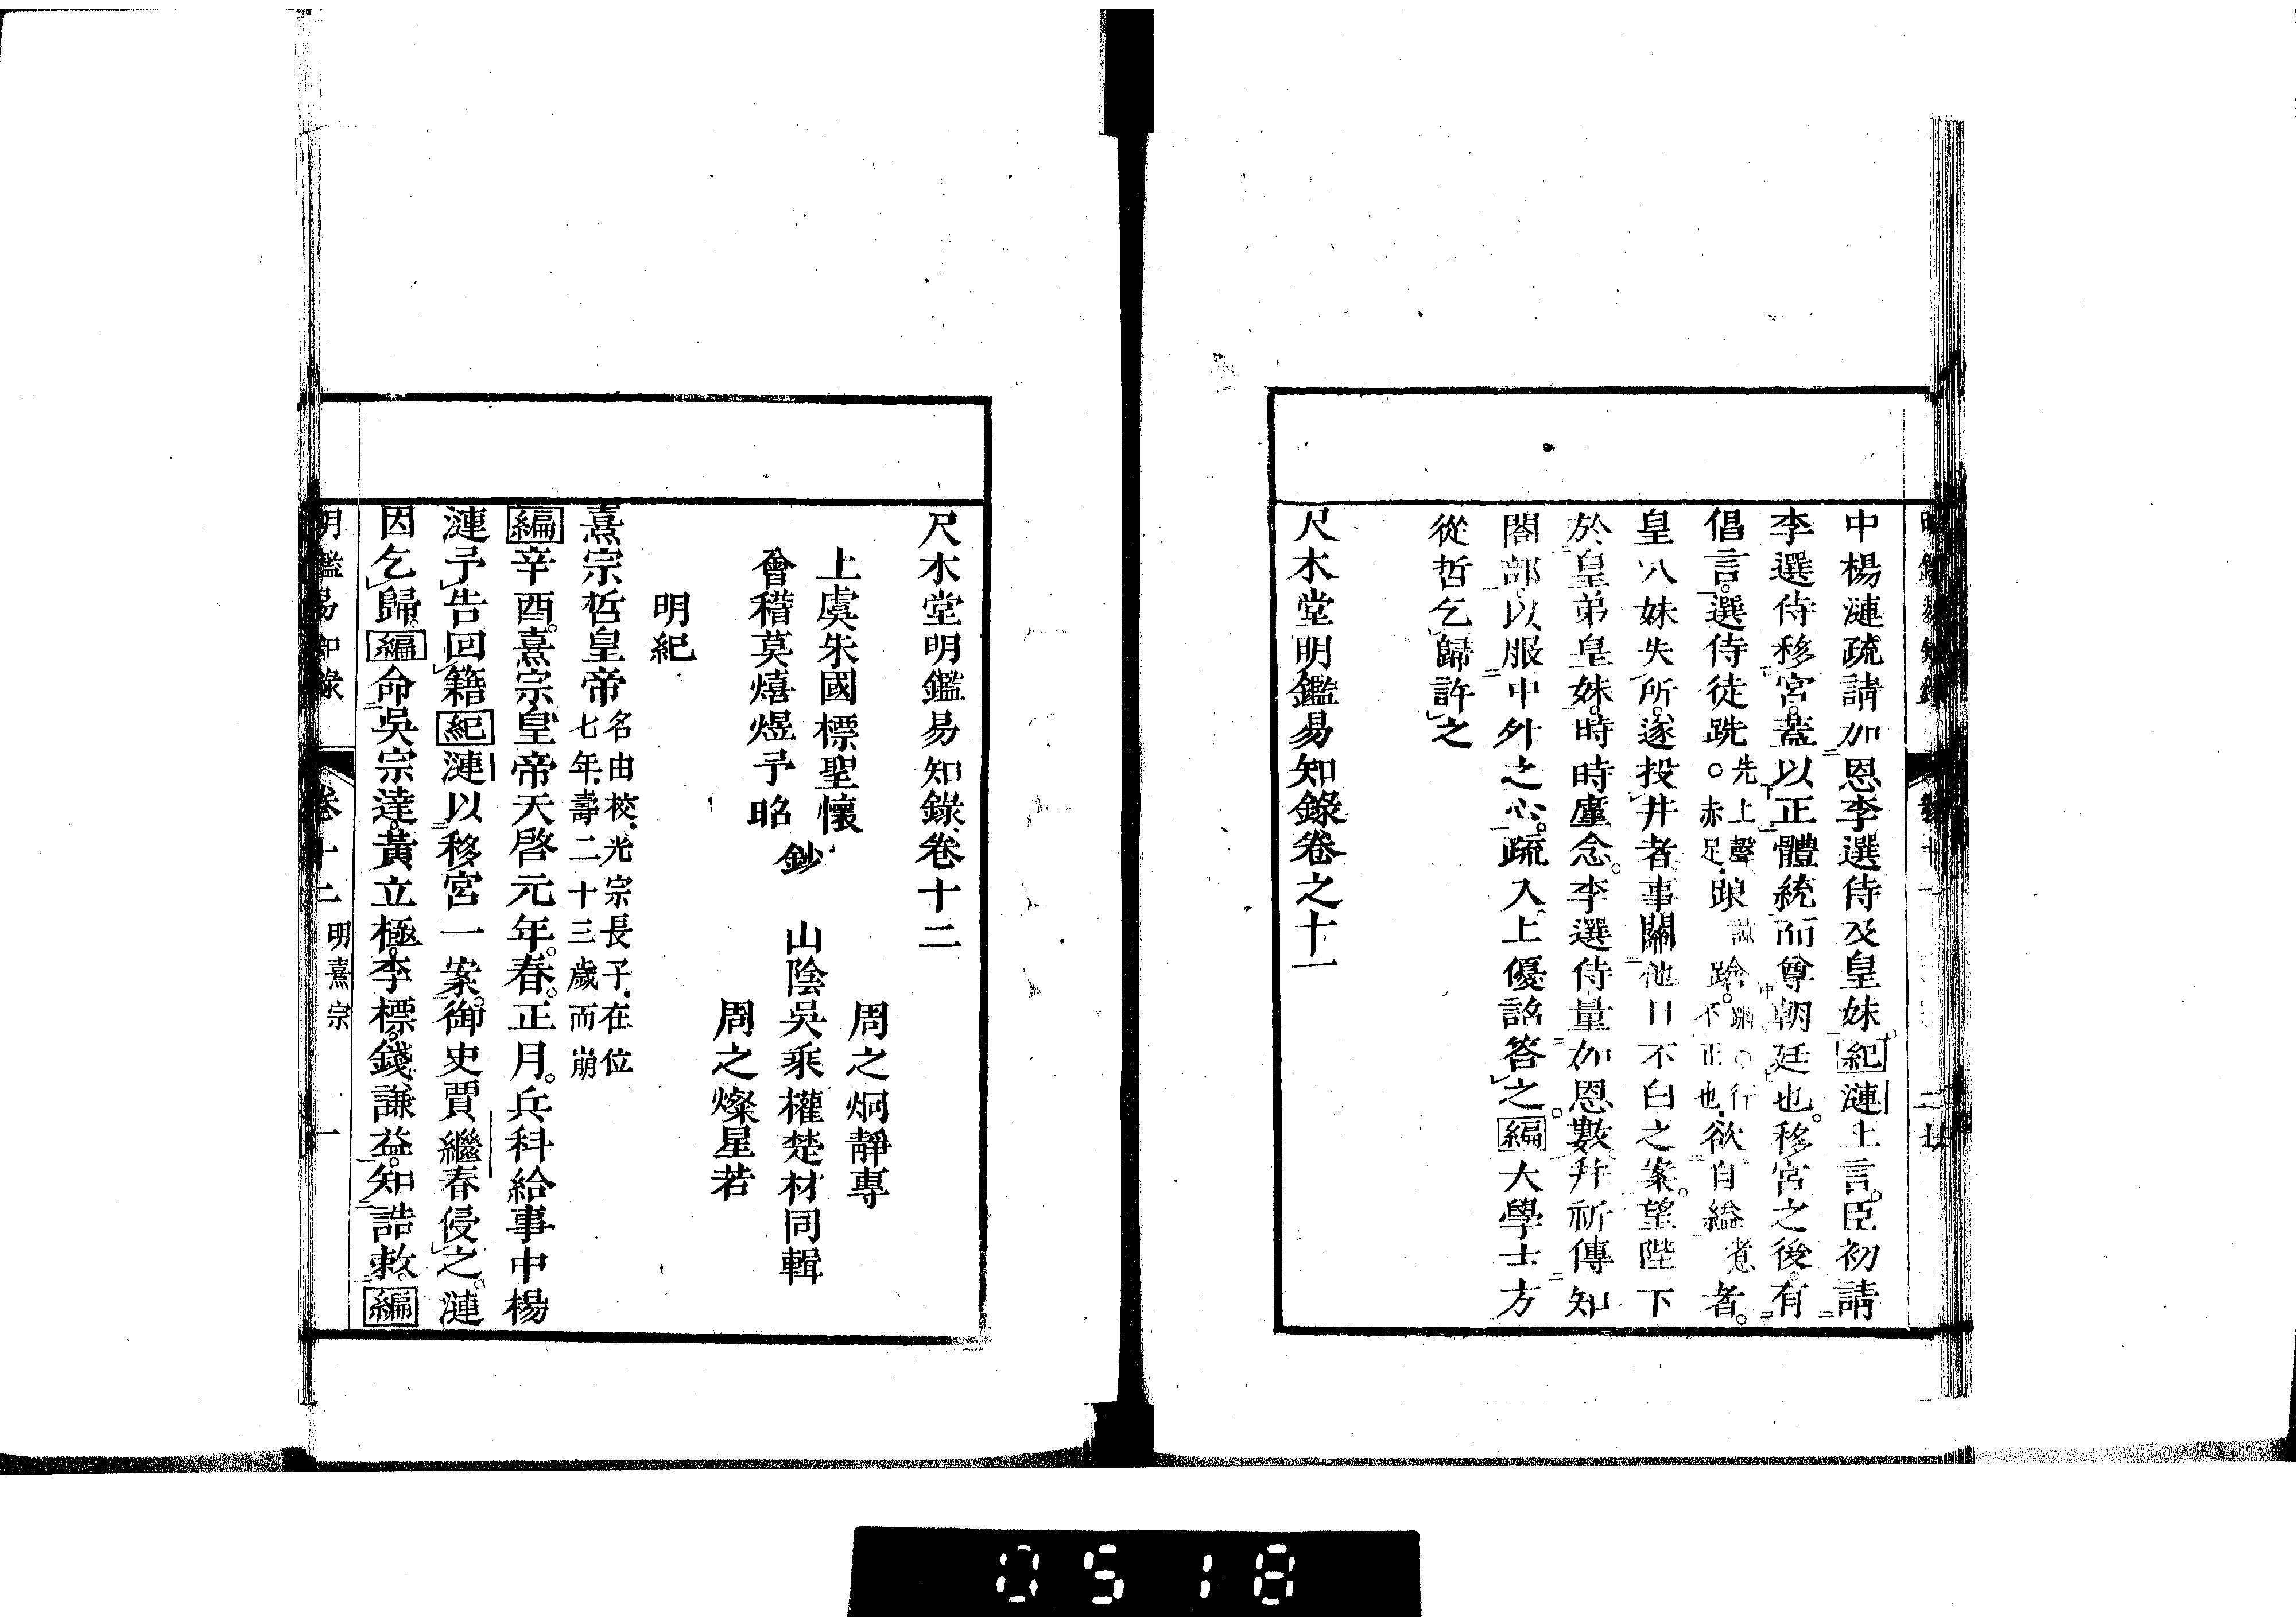 中楊漣疏請加恩李選侍及皇妹。紀漣上言。臣初請
李選侍移宮。蓋以正體統而尊朝廷也。移宮之後。有
倡言。選侍徒跣先上聲○赤足踉跄。不正也欲自縊者。
皇八妹失所。遂投井者。事關他日不白之案。望陛下
於皇弟皇妹。時時廑念。李選侍量加恩數。幷祈傳知
閣部。以服中外之心。疏入。上優詔答之。編大學士方
從哲乞歸許之
尺木堂明鑑易知錄卷之十一
尺木堂明鑑易知錄卷十二
周之炯靜專
上虞朱國標聖懷
鈔
山陰吳乘權楚材同輯
會稽莫熺煜予昭
周之燦星若
明紀
熹宗悊皇帝名由校。光宗長子。在位七年。壽二十三歲而崩
編辛酉。熹宗皇帝天啓元年。春。正月。兵科給事中楊
漣予告回籍紀漣以移宮一案。御史賈繼春侵之。漣
因乞歸。編命吳宗達。黃立極。李標。錢謙益。知誥敕。編
明鑑易知錄 卷十二 明熹宗 一
0518